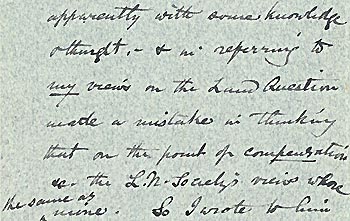 apparently with some knowledge
& thought, - & in referring to
my views on the Land Question
made a mistake in thinking
that on the point of compensation
&c. the L.N. Society's views whose
the same as
mine. So I wrote to him